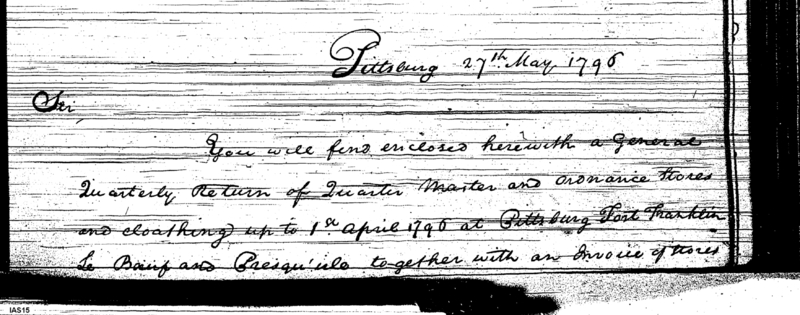 Pittsburg 27th May 1796
Sir
You will find enclosed herewith a General
Quarterly Return of Quarter Master and Ordnance Stores
and cloathing up to 1st April 1796 at Pittsburg Fort Franklin
Le Bœuf and Presqu'isle together with an Invoice of Stores
IAS15